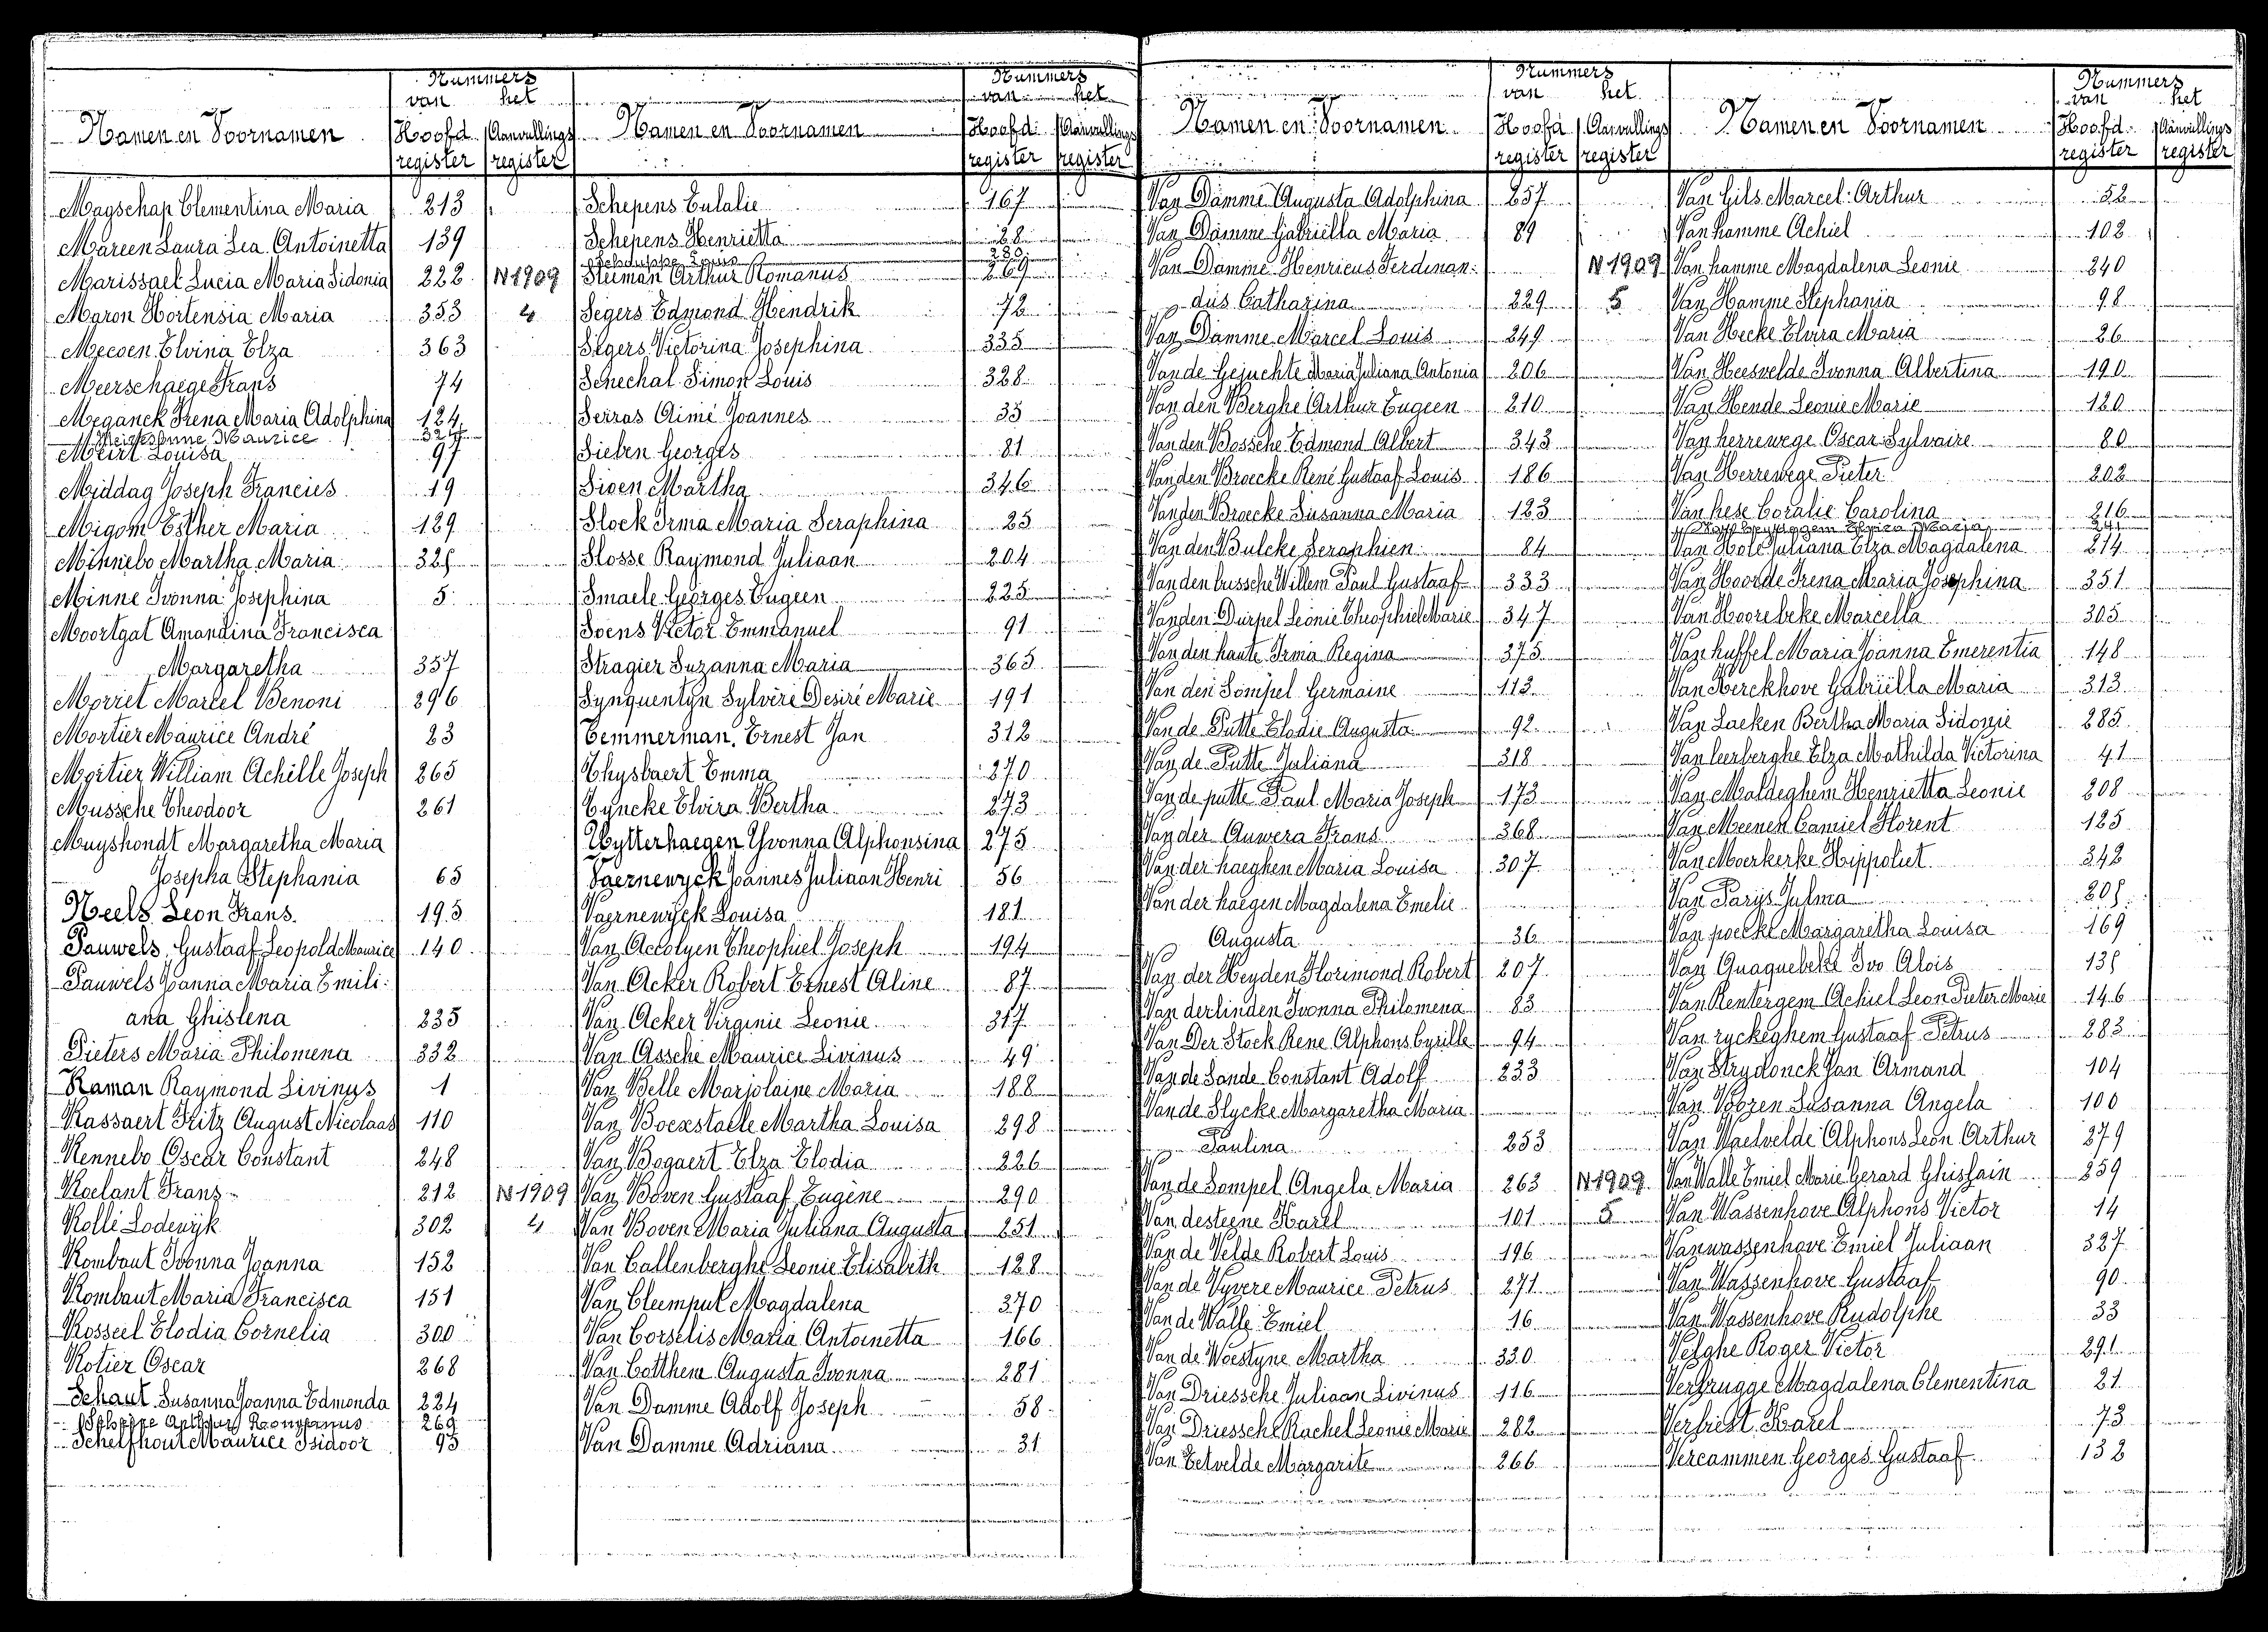 Nummers
van het
Namen en Voornamen Hoofd Aanvullings
register register
Magschap Clementina Maria 213
Mareen Laura Lea Antoinetta 139
Marissael Lucia Maria Sidonia 222 N 1909
Maron Hortensia Maria 353 4
Mecoen Elvina Elza 363
Meerschaege Frans 74
Meganck Irena Maria Adolphina 124
Maurice 324
Meirt Louisa 97
Middag Joseph Francies 19
Migom Esther Maria 129
Minnebo Martha Maria 325
Minne Ivonna Josephina 5
Moortgat Amandina Francisca
Margaretha 357
Morriet Marcel Benoni 296
Mortier Maurice André 23
Mortier William Achille Joseph 265
Mussche Theodoor 261
Muyshondt Margaretha Maria
Josepha Stephania 65
Neels Leon Frans. 195
Pauwels Gustaaf Leopold Maurice 140
Pauwels Joanna Maria Emili:
ana Ghislena 235
Pieters Maria Philomena 332
Raman Raymond Livinus 1
Rassaert Fritz August Nicolaas 110
Rennebo Oscar Constant 248
Roelant Frans 212 N 1909
Rolli Lodewijk 302 4
Rombaut Ivonna Joanna 152
Rombaut Maria Francisca 151
Rosseel Elodia Cornelia 300
Rotier Oscar 268
Schaut Susanna Joanna Edmonda 224
269
Schelfhout Maurice Isidoor 95
Nummers
van het
Namen en Voornamen Hoofd Aanvullings
register register
Schepens Eulalie 167
Schepens Henrietta 28
Louis 280
Arthur Romanus 269
Segers Edmond Hendrik 72
Segers Victorina Josephina 335
Senechal Simon Louis 328
Serras Aimé Joannes 35
Sieben Georges 81
Sioen Martha 346
Slock Irma Maria Seraphina 25
Slosse Raymond Juliaan 204
Smaele Georges Eugeen 225
Soens Victor Emmanuel 91
Stragier Suzanna Maria 365
Synquentyn Sylveré Desiré Marie 191
Temmerman, Ernest Jan 312
Thysbaert Emma 270
Tyncke Elvira Bertha 273
Uytterhaegen Yvonna Alphonsina 275
Vaernewyck Joannes Juliaan Henri 56
Vaernewyck Louisa 181
Van Accolyen Theophiel Joseph 194
Van Acker Robert Ernest Aline 87
Van Acker Virginie Leonie 317
Van Assche Maurice Livinus 49
Van Belle Marjolaine Maria 188
Van Boexstaele Martha Louisa 298
Van Bogaert Elza Elodia 226
Van Boven Gustaaf Eugène 290
Van Boven Maria Juliana Augusta 251
Van Callenberghe Leonie Elisabeth 128
Van Cleemput Magdalena 370
Van Corselis Maria Antoinetta 166
Van Cotthem Augusta Ivonna 281
Van Damme Adolf Joseph 58
Van Damme Adriana 31
Nummers
van het
Namen en Voornamen Hoofd Aanvullings
register register
Van Damme Augusta Adolphina 257
Van Damme Gabriella Maria 89
Van Damme Henricus Ferdinan: N 1909
dus Catharina 229 5
Van Damme Marcel Louis 249
Van de Gejuchte Maria Juliana Antonia 206
Van den Berghe Arthur Eugeen 210
Van den Bossche Edmond Albert 343
Vanden Broecke René Gustaaf Louis 186
Vanden Broecke Susanna Maria 123
Van den Bulcke Seraphien 84
Van den bussche Willem Paul Gustaaf 333
Vanden Durpel Leonie Theophiel Marie 347
Van den haute Irma Regina 375
Van den Sompel Germaine 113
Van de Putte Elodie Augusta 92
Van de Putte Juliana 318
Van de putte Paul Maria Joseph 173
Van der Auwera Frans 368
Van der haeghen Maria Louisa 307
Van der haegen Magdalena Emelie
Augusta 36
Van der Heyden Florimond Robert 207
Van derlinden Ivonna Philomena 83
Van Der Stock Rene Alphons Cyrille 94
Van de Sande Constant Adolf 233
Van de Slycke Margaretha Maria
Paulina 253
Van de Sompel Angela Maria 263 N 1909
Van desteene Karel 101 5
Van de Velde Robert Louis 196
Van de Vyvere Maurice Petrus 271
Van de Walle Emiel 16
Van de Woestyne Martha 330
Van Driessche Juliaan Livinus 116
Van Driessche Rachel Leonie Marie 282
Van Eetvelde Margarite 266
Nummers
van het
Namen en Voornamen Hoofd Aanvullings
register register
Van Gils Marcel Arthur 52
Van hamme Achiel 102
Van hamme Magdalena Leonie 240
Van Hamme Stephania 98
Van Hecke Elvira Maria 26
Van Heesvelde Ivonna Albertina 190
Van Hende Leonie Marie 120
Van herrewege Oscar Sylvaire 80
Van Herrewege Pieter 202
Van hese Coralie Carolina 216
Elvira Maria 241
Van Hole Juliana Elza Magdalena 214
Van Hoorde Irena Maria Josephina 351
Van Hoorebeke Marcella 305
Van huffel Maria Joanna Emerentia 148
Van Kerckhove Gabriëlla Maria 313
Van Laeken Bertha Maria Sidonie 285
Van leerberghe Elza Mathilda Victorina 41
Van Maldeghem Henrietta Leonie 208
Van Meenen Camiel Florent 125
Van Moerkerke Hippoliet 342
Van Parijs Julma 205
Van poecke Margaretha Louisa 169
Van Quaquebeke Ivo Alois 135
Van Rentergem Achiel Leon Pieter Marie 146
Van ryckeghem Gustaaf Petrus 283
Van Strydonck Jan Armand 104
Van Vooren Susanna Angela 100
Van Waelvelde Alphons Leon Arthur 279
Van Walle Emiel Marie Gerard Ghislain 259
Van Wassenhove Alphons Victor 14
Vanwassenhove Emiel Juliaan 327
Van Wassenhove Gustaaf 90
Van Wassenhove Rudolphe 33
Velghe Roger Victor 291
Verbrugge Magdalena Clementina 21
Verbiest Karel 73
Vercammen Georges Gustaaf 132